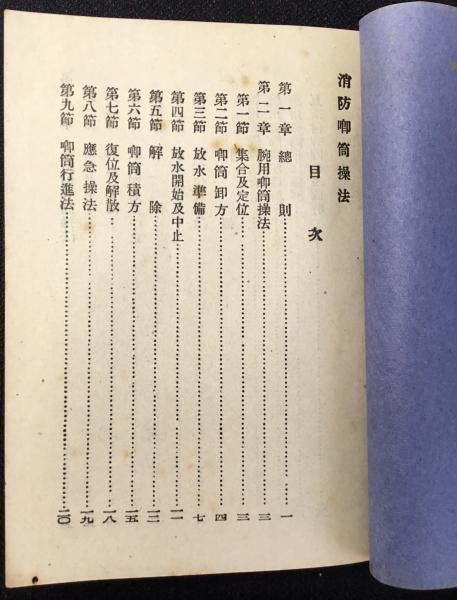 消防喞筒操法
目次
第一章 總則……一
第二章 腕用喞筒操法……三
第一節 集合及定位……三
第二節 喞筒卸方……四
第三節 放水準備……七
第四節 放水開始及中止……一一
第五節 解除……一二
第六節 喞筒積方……一五
第七節 復位及解散……一八
第八節 應急操法……一九
第九節 喞筒行進法……二〇